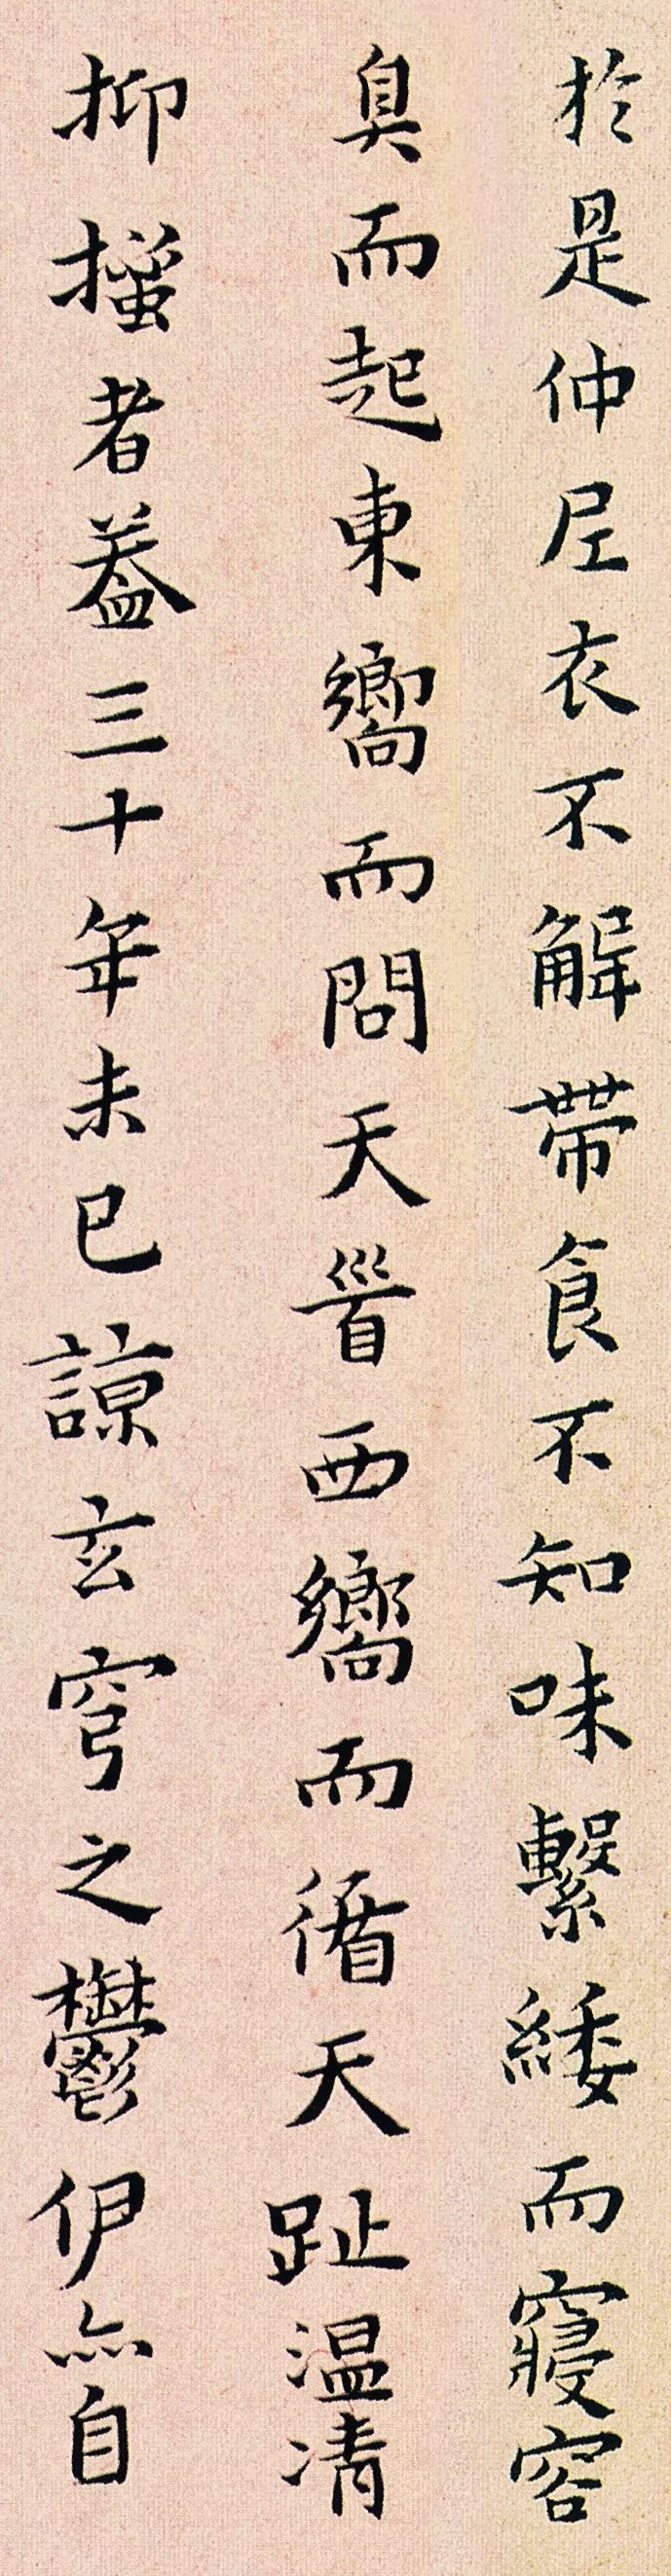 於是仲㞾衣不解帶食不知味繫緌而寢容
臭而起東嚮而問天晉西嚮而循天趾温凊
抑搔者葢三十年未已諒玄穹之鬱伊亦自